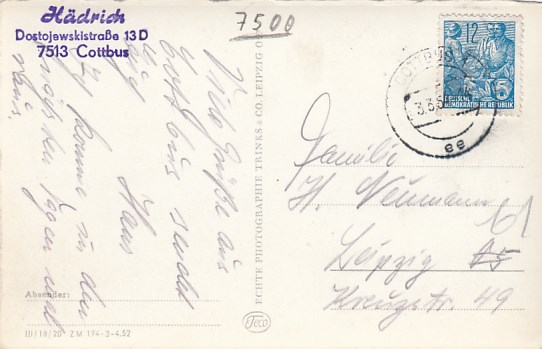 Hädrich
Dostojewskistraße 13 D
7513 Cottbus
7500
12
COTTBUS
DEUTSCHE
DEMOKRATISCHE REPUBLIK
ee
Viele Grüße aus
Cottbus sendet
Hans
Ich komme in den
nächsten Tagen mal
Absender:
III/18/20 ZM 174-3-4.52
ECHTE PHOTOGRAPHIE TRINKS & CO. LEIPZIG
Teco
Familie
H. Neumann
Leipzig
Kreuzstr. 49